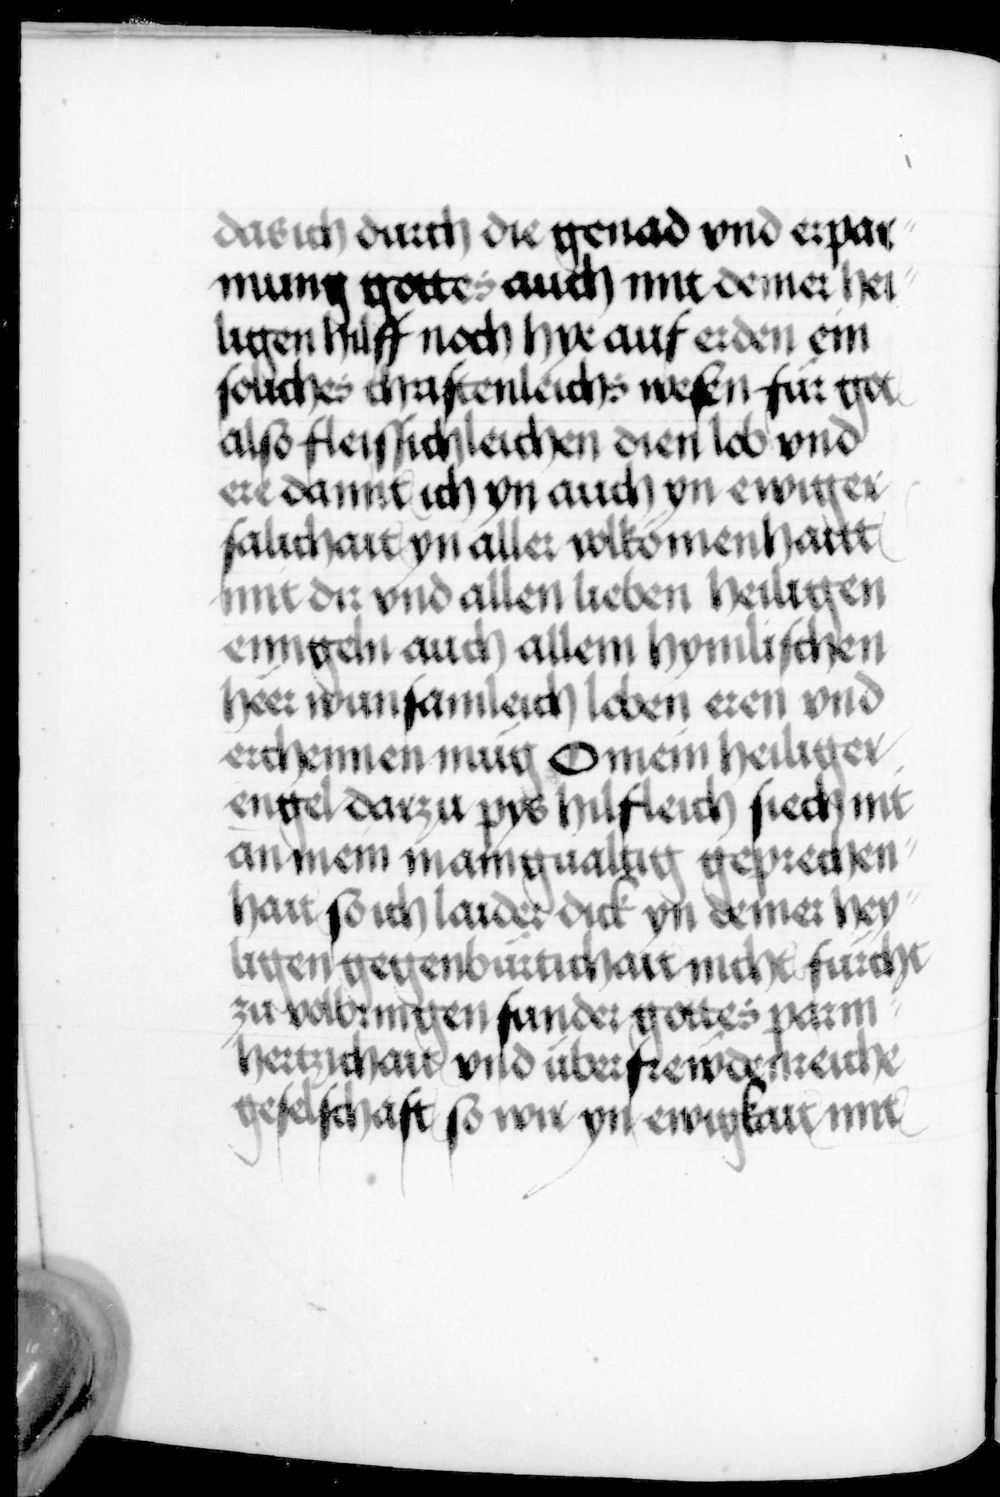 das ich durch die genad vnd erpar„
mung gottes auch mit deiner hei„
ligen hilff noch hye auf erden ein
soliches christenleichs wesen für got
also fleissichleichen dien lob vnd
ere damit ich yn auch yn ewiger
salichait yn aller volkomenhaitt
mit dir vnd allen lieben heiligen
enngeln auch allem hymlischen
heer wunsamleich loben eren vnd
erchennen müg O mein heiliger
engel darzu pys hilfleich siech nit
an mein mainguältig geprechen„
hait so ich laider dick yn deiner hey„
ligen gegenbürtichait nicht fürcht
zu volbringen sunder gottes parm„
hertzichait vnd überfrewdenreiche
geselschaft so wir yn ewigkait mit